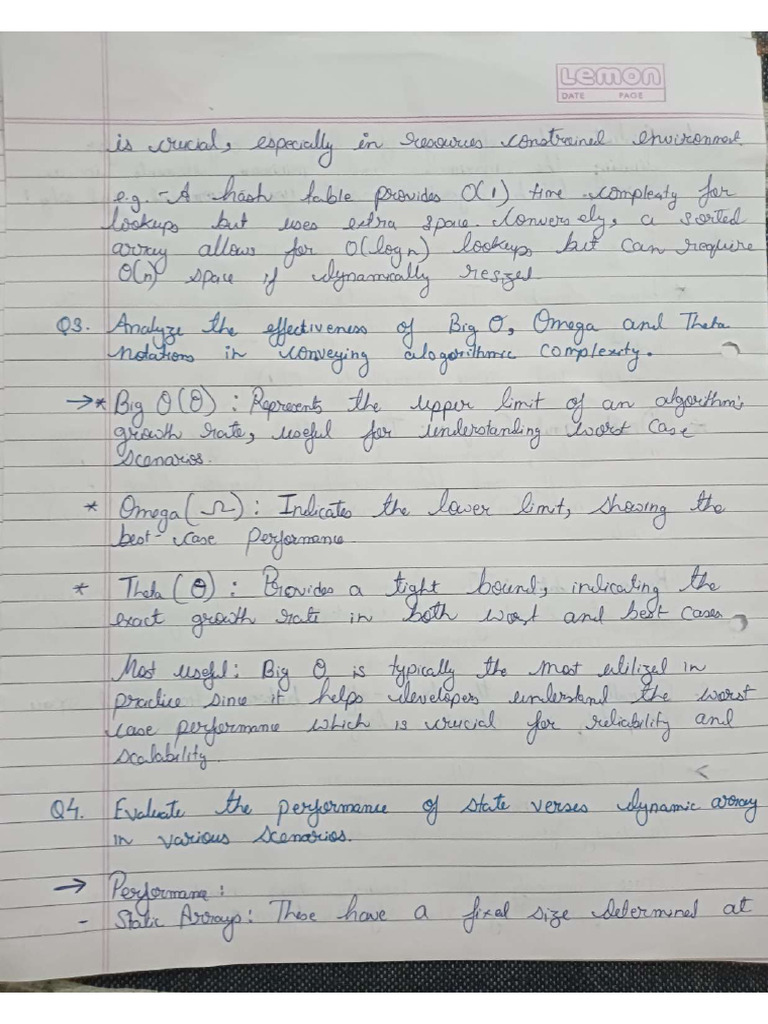 Lemon
DATE PAGE
is crucial, especially in resources constrained environment.
e.g. - A hash table provides O(1) time complexity for
lookups but uses extra space. Conversely, a sorted
array allows for O(log n) lookups but can require
O(n) space if dynamically resized
Q3. Analyze the effectiveness of Big O, Omega and Theta
notations in conveying alogorithmic complexity.
→* Big O(θ) : Represents the upper limit of an algorithm's
growth rate, useful for understanding worst case
scenarios.
* Omega (Ω) : Indicates the lower limit, showing the
best-case performance
* Theta (θ) : Provides a tight bound, indicating the
exact growth rate in both worst and best cases
Most useful : Big O is typically the most utilized in
practice since it helps developers understand the worst
case performance which is crucial for reliability and
scalability.
Q4. Evaluate the performance of state verses dynamic array
in various scenarios.
→ Performance :
- Static Arrays : These have a fixed size determined at